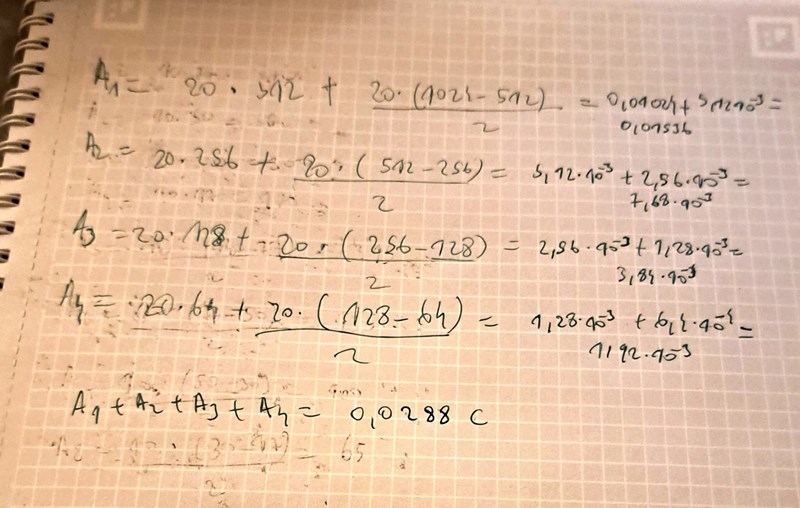 A1 = 20 · 512 + 20·(1024-512)/2 = 0,01024 + 5,12·10^-3 =
0,01536
A2 = 20·256 + 20·(512-256)/2 = 5,12·10^-3 + 2,56·10^-3 =
7,68·10^-3
A3 = 20·128 + 20·(256-128)/2 = 2,56·10^-3 + 1,28·10^-3 =
3,84·10^-3
A4 = 20·64 + 20·(128-64)/2 = 1,28·10^-3 + 6,4·10^-4 =
1,92·10^-3
A1 + A2 + A3 + A4 = 0,0288 C